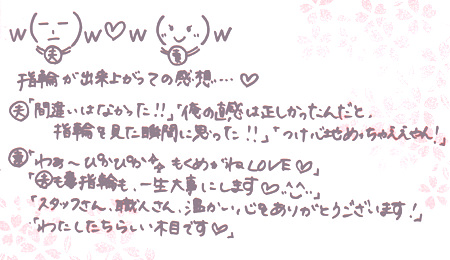 w(夫)w♡w(妻)w
指輪が出来上がっての感想…♡
夫「間違いはなかった!!」「俺の直感は正しかったんだと、
指輪を見た瞬間に思った!!」「つけ心地めっちゃええやん!」
妻「わぁ〜ぴかぴか もくめがねLOVE♡」
「夫も指輪も、一生大事にします♡^^」
「スタッフさん、職人さん、温かい心をありがとうございます!」
「わたしたちらしい木目です♡」